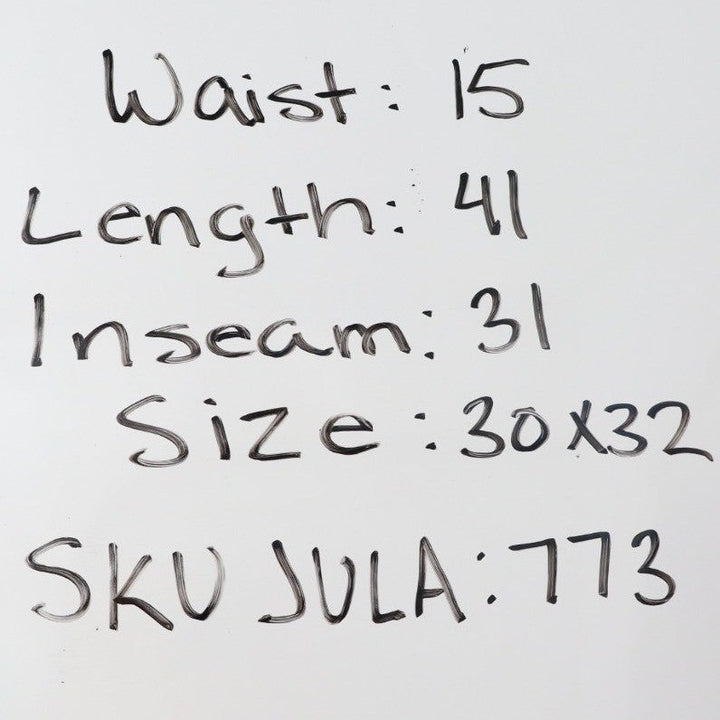 Waist: 15
Length: 41
Inseam: 31
Size: 30x32
SKU JULA: 773